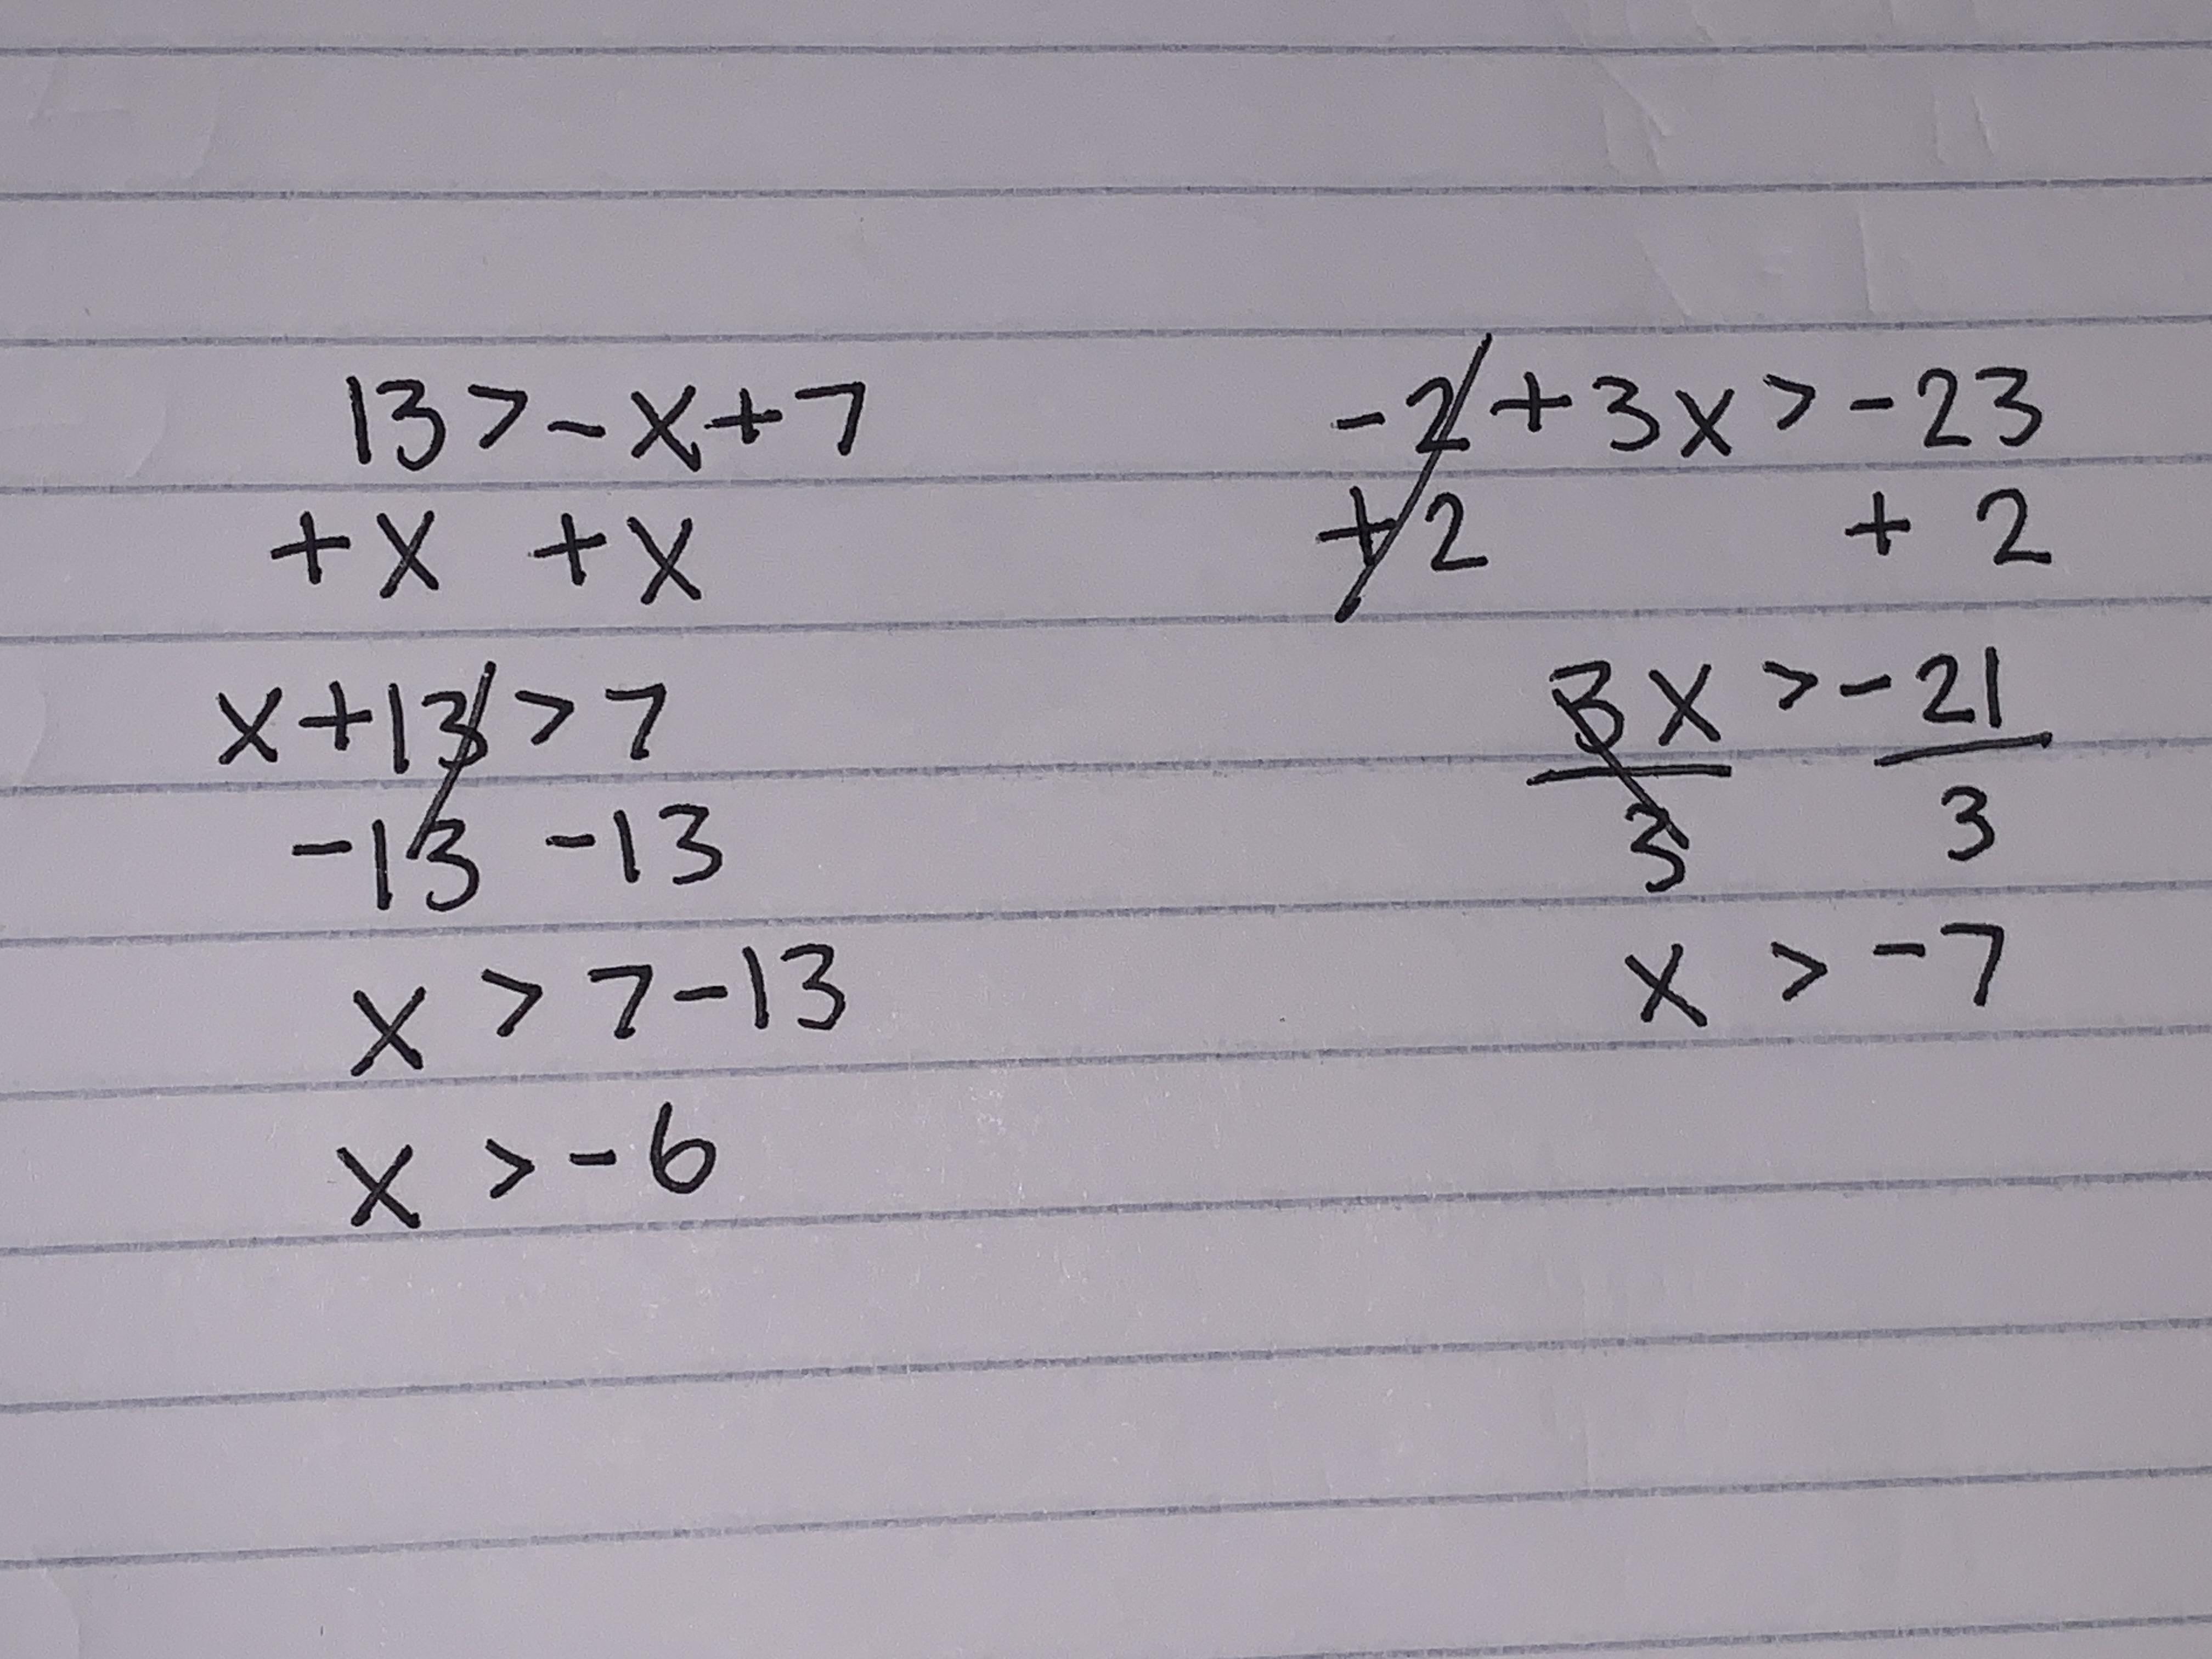 13 > -x + 7
+x +x
x + 13 > 7
-13 -13
x > 7 - 13
x > -6
-2 + 3x > -23
+2 + 2
3x > -21
3 3
x > -7